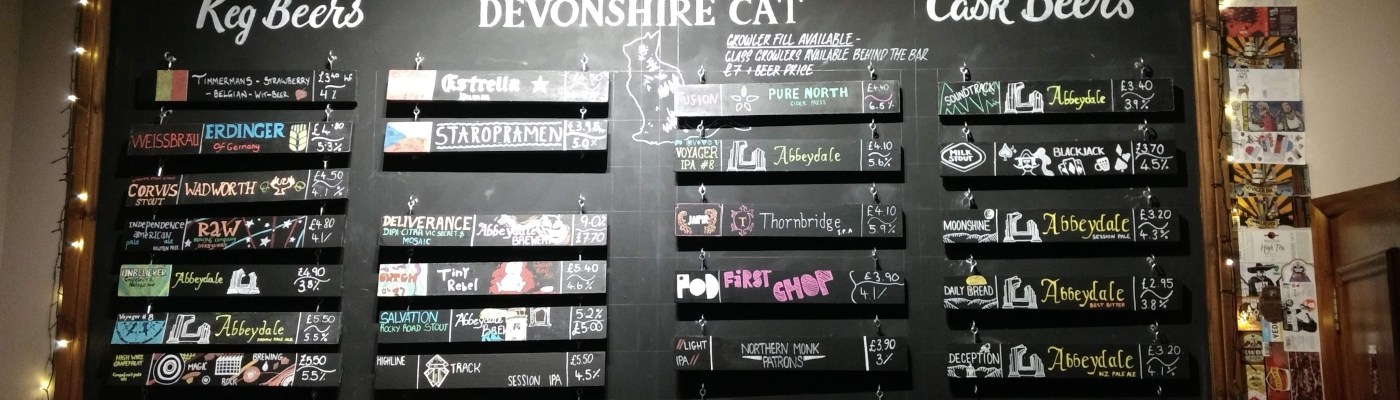 Keg Beers
DEVONSHIRE CAT
Cask Beers
GROWLER FILL AVAILABLE -
GLASS GROWLERS AVAILABLE BEHIND THE BAR
£7 + BEER PRICE
TIMMERMANS - STRAWBERRY
- BELGIAN - WIT-BEER
£3.40
4%
WEISSBRÄU ERDINGER
Of Germany
£4.80
5.3%
CORVUS
STOUT
WADWORTH
£4.50
4.1%
INDEPENDENCE
american
pale ale
RAW
£4.80
4.1/
UNBELIEVER
Abbeydale
£4.90
3.8%
Voyager #8
Abbeydale
£5.50
5.5%
HIGH WIRE
GRAPEFRUIT
MAGIC
ROCK
BREWING
£5.50
5.5%
Estrella
Damm
STAROPRAMEN
£3.95
5.0%
DELIVERANCE
DIPA CITRA VIC SECRET &
MOSAIC
Abbeydale
BREWERY
9.0%
£7.70
Tiny
Rebel
£5.40
4.6%
SALVATION
ROCKY ROAD STOUT
Abbeydale
5.2%
£5.00
HIGHLINE
TRACK
SESSION IPA
£5.50
4.5%
FUSION
PURE NORTH
CIDER PRESS
£4.40
4.5%
VOYAGER
IPA #8
Abbeydale
£4.10
5.6%
JAIPUR
Thornbridge
IPA
£4.10
5.9%
POD
FiRST
CHOP
£3.90
4.1/
//LIGHT
IPA//
NORTHERN MONK
PATRONS
£3.90
3/
SOUNDTRACK
Abbeydale
£3.40
3.9%
MILK
STOUT
BLACKJACK
£3.70
4.5%
MOONSHINE
Abbeydale
SESSION PALE
£3.20
4.3%
DAILY BREAD
Abbeydale
BEST BITTER
£2.95
3.8%
DECEPTION
Abbeydale
NZ PALE ALE
£3.20
4.1%